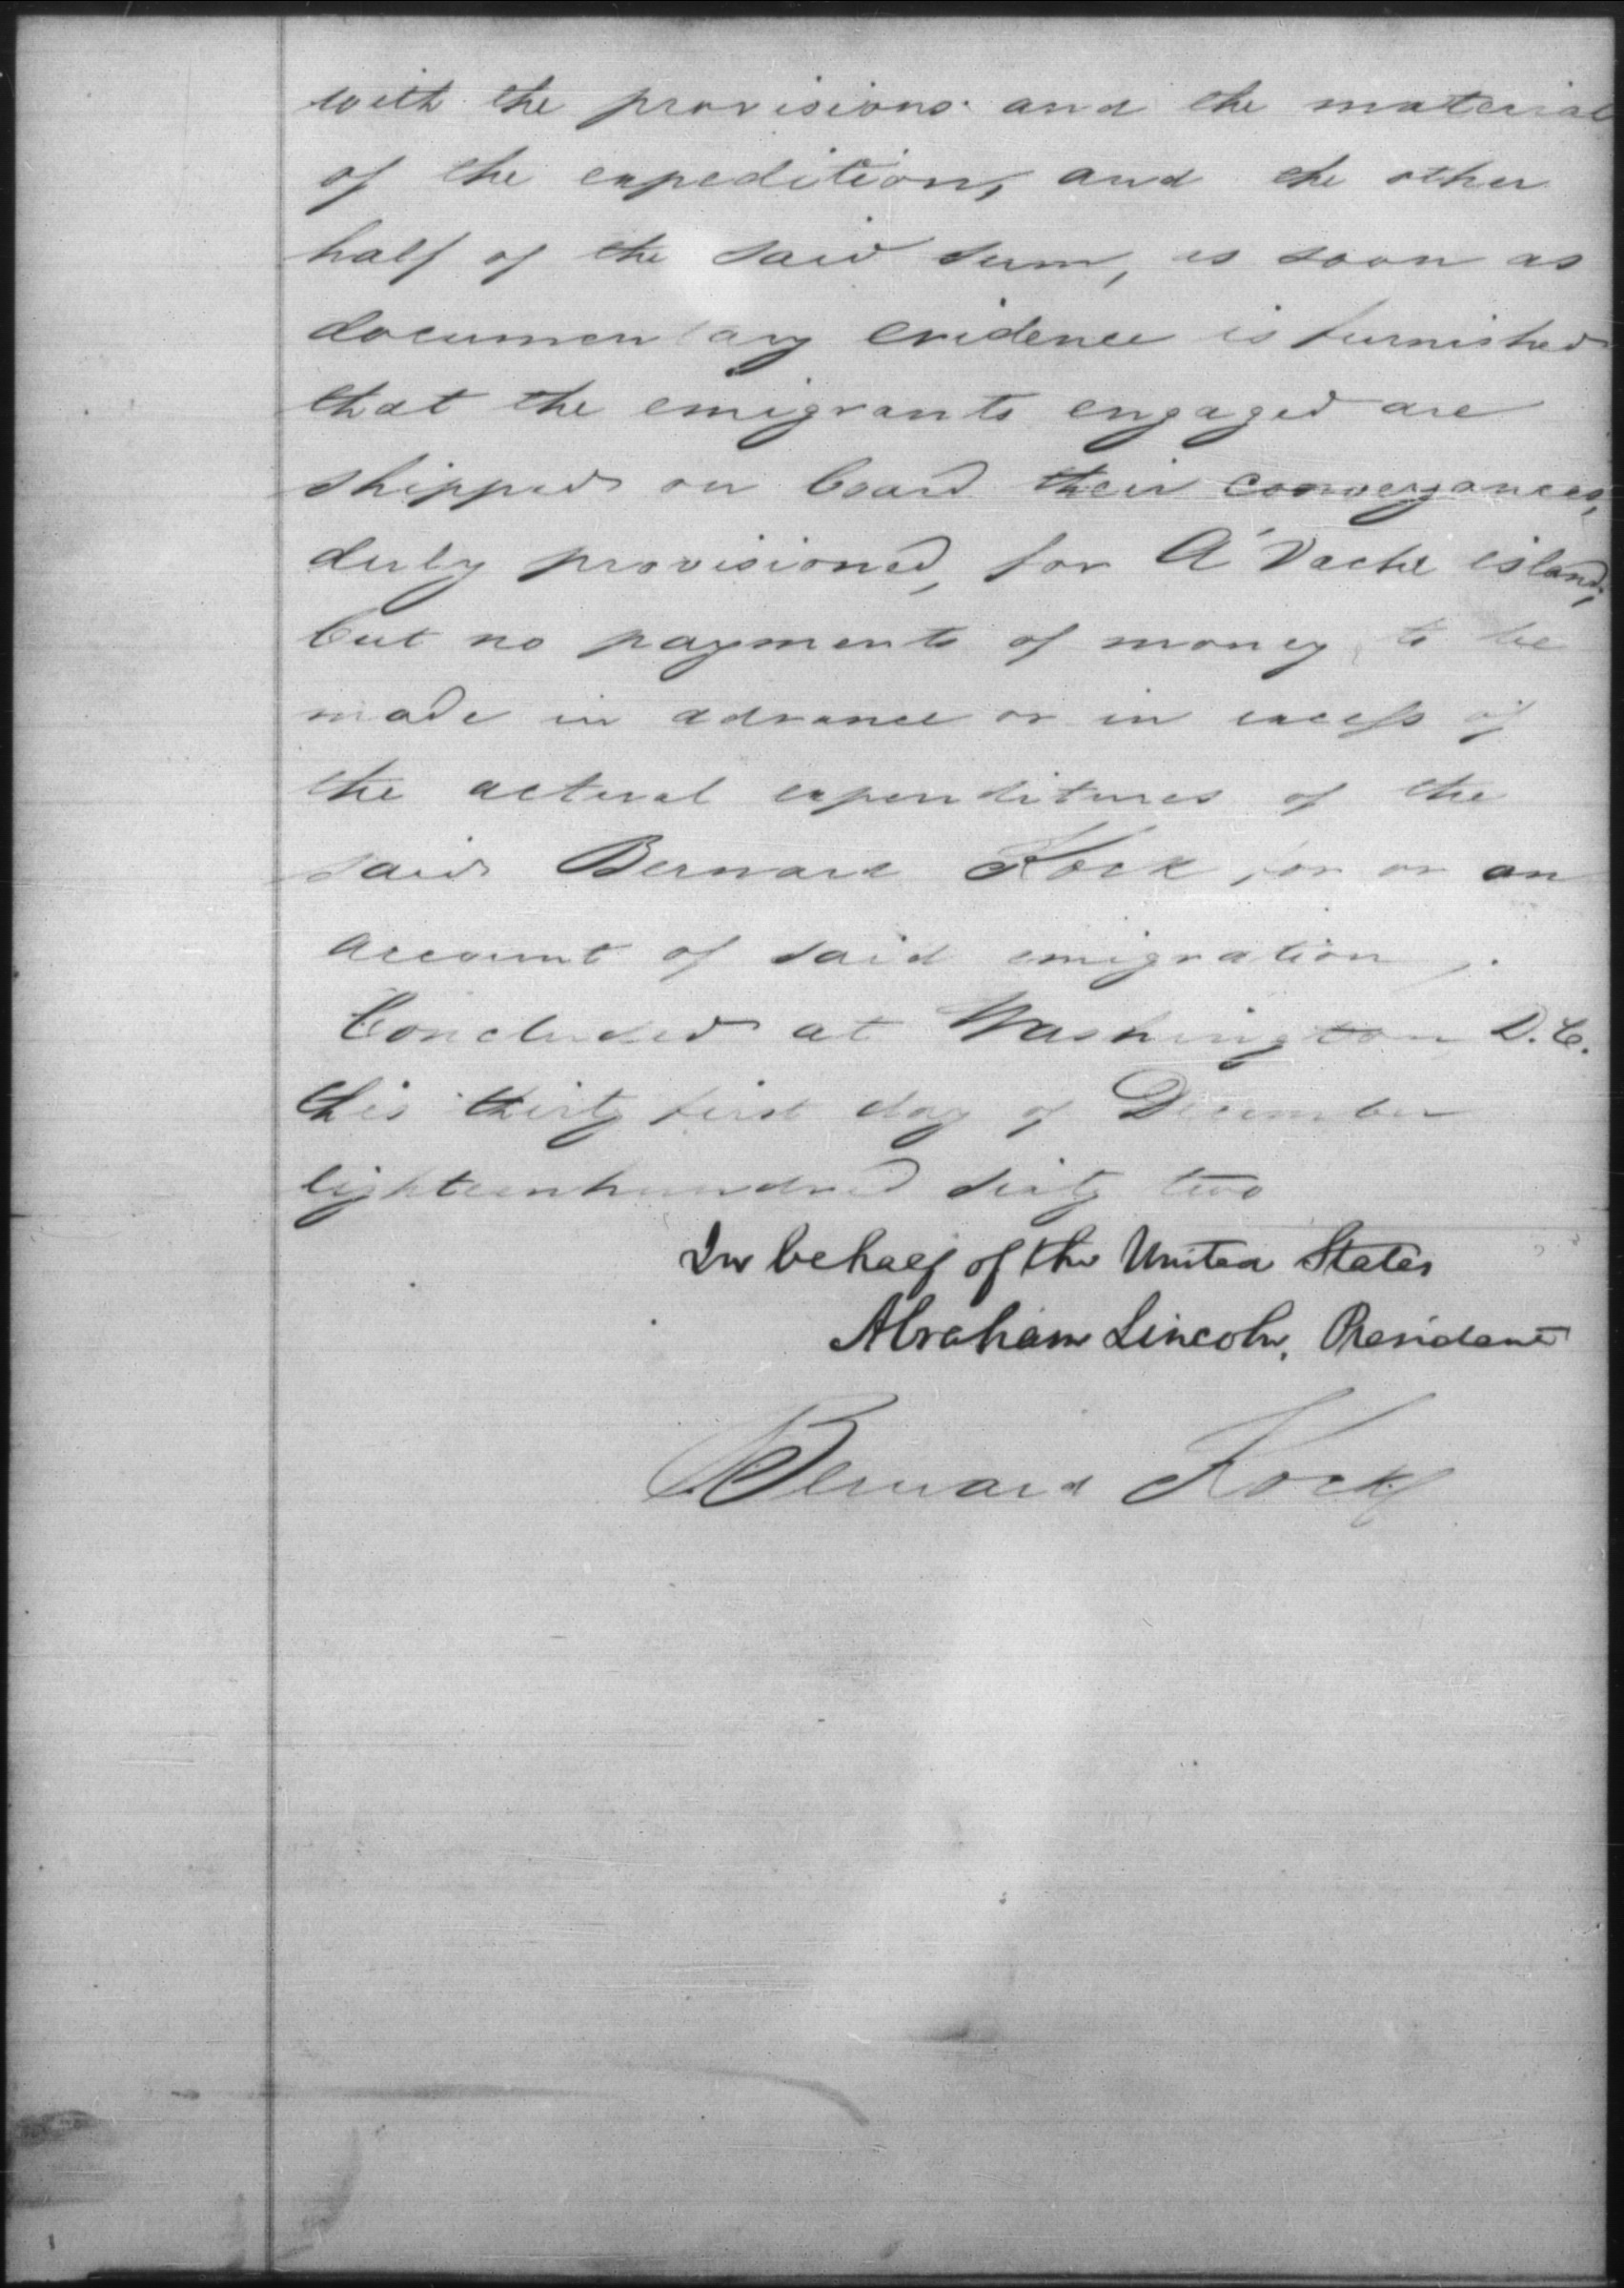 with the provisions and the material
of the expedition, and the other
half of the said sum, as soon as
documentary evidence is furnished
that the emigrants engaged are
shipped on board their conveyances,
duly provisioned, for A'Vache island;
but no payments of money to be
made in advance or in excess of
the actual expenditures of the
said Bernard Kock for or on
account of said emigration.
Concluded at Washington D.C.
this thirty first day of December
eighteenhundred sixty two
In behalf of the United States
Abraham Lincoln, President
Bernard Kock